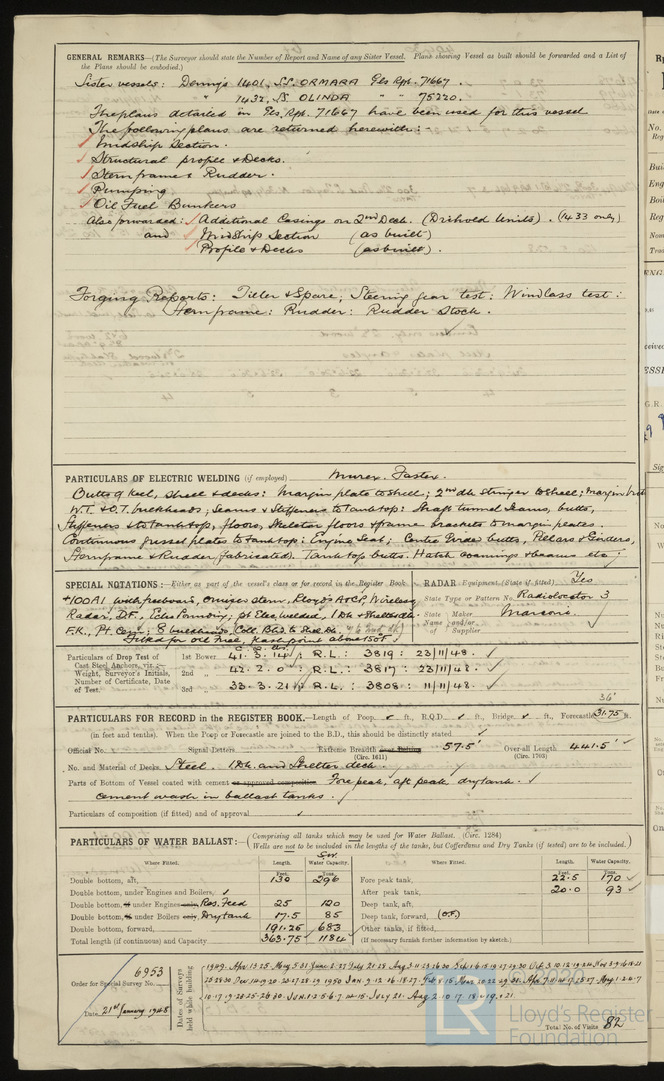 GENERAL REMARKS—(The Surveyor should state the Number of Report and Name of any Sister Vessel. Plans showing Vessel as built should be forwarded and a List of
the Plans should be embodied.)
Sister vessels: Denny's 1401, S.S. ORMARA Gls Rpt. 71667.
" 1432, S.S. OLINDA " " 75220.
Fireplans detailed in Gls. Rpt. 71667 have been used for this vessel
The following plans are returned herewith:-
Midship Section.
Structural profile & Decks.
Sternframe & Rudder.
Pumping
Oil Fuel Bunkers
Also forwarded: Additional Casings on 2nd Deck. (Drihold Units). (1433 only)
and Midship Section (as built)
Profile & Decks (as built).
Forging Reports: Tiller & Spare; Steering gear test: Windlass test:
Sternframe: Rudder: Rudder Stock.
PARTICULARS OF ELECTRIC WELDING (if employed) Murex. Fastex.
Butts of keel, shell & decks: Margin plate to shell; 2nd dk stringer to shell; margin
W.T. & O.T. bulkheads; Seams & Stiffeners to Tanktop: Shaft tunnel seams, butts,
Stiffeners & to tanktop, floors, Skeleton floors & frame brackets to margin plates.
Continuous gusset plates to tanktop: Engine Seat; Centre Girder butts, Pillars & Girders,
Sternframe & Rudder (fabricated). Tanktop butts. Hatch coamings & beams etc;
SPECIAL NOTATIONS:—Either as part of the vessel's class or for record in the Register Book
+100A1 with freeboard, cruiser stern, Lloyd's A&CP, Wireless,
Radar, D.F., Echo Sounding; pt Elec. welded, 1 Dk & Shelter dk.
F.K., Pt Cem: 8 bulkheads Coll. Bhd. to Shel. Dk.
Fitted for oil fuel, flash point above 150°F
RADAR Equipment (State if fitted) Yes
State Type or Pattern No. Radiolocator 3
State Name Maker and/or of Supplier Marconi.
Particulars of Drop Test of
Cast Steel Anchors, viz.:—
Weight, Surveyor's Initials,
Number of Certificate, Date
of Test.
1st Bower 41. 3. 14: R.L.: 3819: 23/11/48.
2nd " 42. 2. 0: R.L.: 3817: 23/11/48.
3rd " 33. 3. 21: R.L.: 3808: 11/11/48.
36'
PARTICULARS FOR RECORD in the REGISTER BOOK.—Length of Poop, ft., R.Q.D. ft., Bridge, ft., Forecastle 31.75 ft.
(in feet and tenths). When the Poop or Forecastle are joined to the B.D., this should be distinctly stated
Official No. Signal Letters Extreme Breadth over Plating 57.5' Over-all Length 441.5'
(Circ. 1611) (Circ. 1703)
No. and Material of Decks Steel. 1 Dk. and Shelter deck.
Parts of Bottom of Vessel coated with cement or approved composition Fore peak, aft peak, dry tank.
cement wash in ballast tanks.
Particulars of composition (if fitted) and of approval
PARTICULARS OF WATER BALLAST:— (Comprising all tanks which may be used for Water Ballast. (Circ. 1284)
Wells are not to be included in the lengths of the tanks, but Cofferdams and Dry Tanks (if tested) are to be included.)
Where Fitted. Length. Water Capacity. Where Fitted. Length. Water Capacity.
Feet. Tons. Feet. Tons.
Double bottom, aft, 130 296 Fore peak tank, 22.5 170
Double bottom, under Engines and Boilers, After peak tank, 20.0 93
Double bottom, if under Engines only, Res. Feed 25 120 Deep tank, aft,
Double bottom, if under Boilers only, Dry tank 17.5 85 Deep tank, forward, (O.F.)
Double bottom, forward, 191.25 683 Other tanks, if fitted,
Total length (if continuous) and Capacity 363.75 1184 (If necessary furnish further information by sketch.)
Order for Special Survey No. 6953
Date 21st January 1948
Dates of Surveys held while building
Total No. of Visits 82
LR
© 2020
Lloyd's Register
Foundation